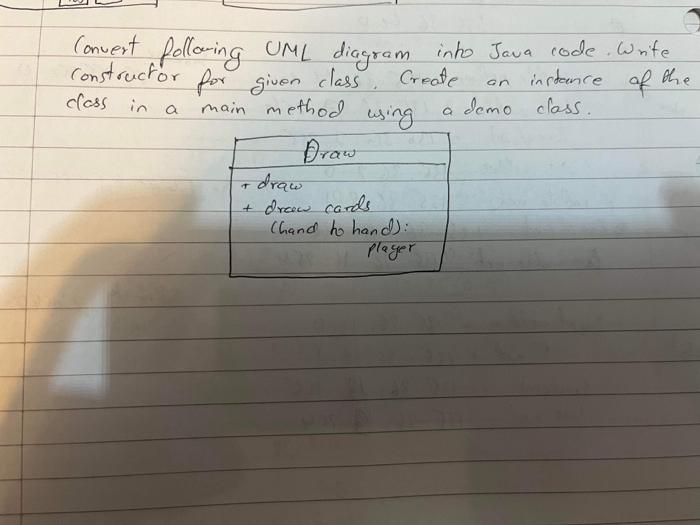 Convert following UML diagram into Java code. Write
constructor for given class. Create an instance of the
class in a main method using a demo class.
Draw
+ draw
+ draw cards
(hand to hand):
player